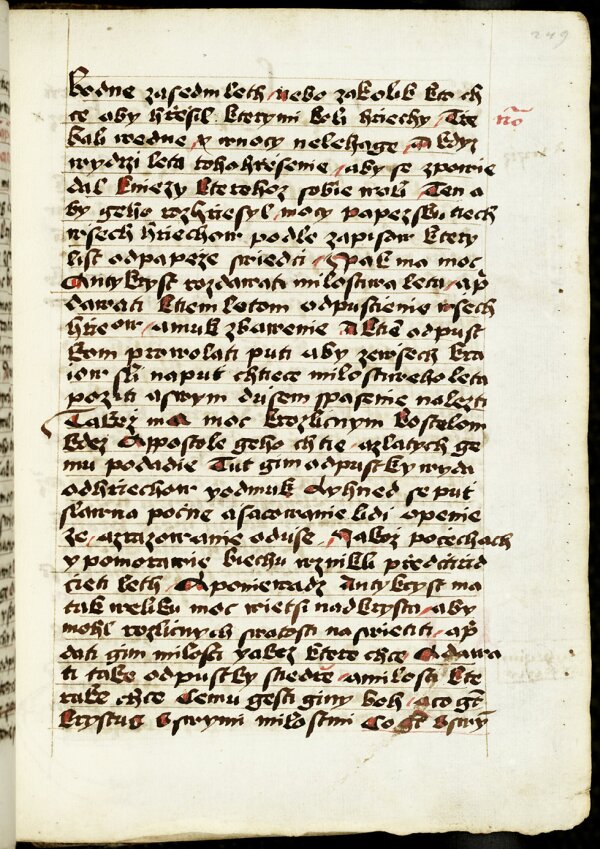 249
kodne za sedm leth nebo zakolik kto ch
ce aby hřesil kterymi koli hriechy Tre
no̅
bali wedne y wnocy nelehage A kdyz
wydrzi leta toho hřesenie aby se zpowie
dal kniezy kterehoz sobie woli Ten a
by geho rozhriesyl mocy papezsku tiech
wsech hriechow podle zapisow ktery
list odpapeze swiedci Opak ma moc
Antykryst rozdawati milostiwa leta a př
dawati ktiem letom odpustienie wsech
hrieow amuk zbawenie A ktie̅ odpust
kom prowolati puti aby zewsech kra
iow sli naput chtiece milostiweho leta
poziti aswym dusem spasenie nalezti
Takez ma moc krozlicnym kostelom
kdez Appostole geho chtie azlatych ge
mu podadie Tut gim odpustky wyda
odhriechow yodmuk Ayhned se put
slawna pocne asacowanie lidi openie
ze azrazowanie oduse Jakoz pocechach
y pomorawie biechu wznikli předctirid
cieti leth A poniewadz Antykryst ma
tak weliku moc wietsi nadkrysta aby
mohl rozlicnych swatosti naswietiti a př
dati gim milosti yakez ktere chce A dawa
ti take odpustky stedře amilosti kte
rake chce Cemu gesti giny boh aco gt̅
krystus Sswymi milostmi Co gt̅ Sswy